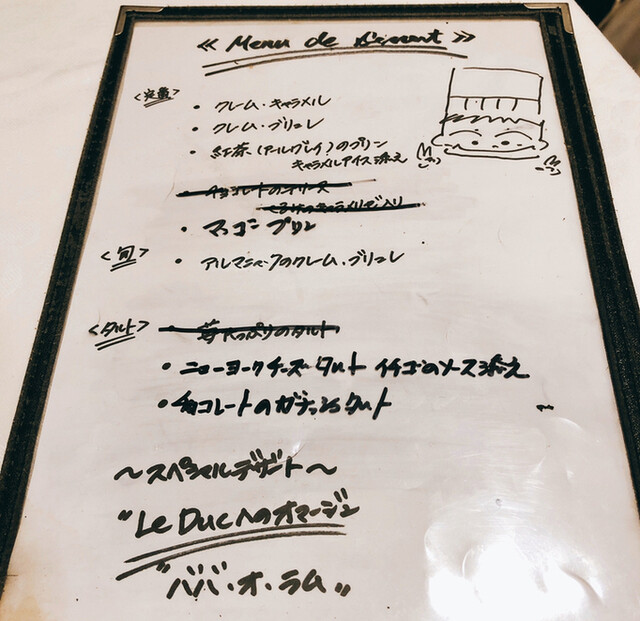 ≪ Menu de Dessert ≫
<定番>
・クレーム・キャラメル
・クレーム・ブリュレ
・紅茶(アールグレイ)のプリン
キャラメルアイス添え
チョコレートのテリーヌ
くるみのキャラメリゼ入り
・マンゴープリン
<旬>
・アルマニャックのクレーム・ブリュレ
<タルト>
・苺たっぷりのタルト
・ニューヨークチーズタルト イチゴのソース添え
・チョコレートのガナッシュタルト
〜スペシャルデザート〜
"Le Ducへのオマージュ
"ババ・オ・ラム"